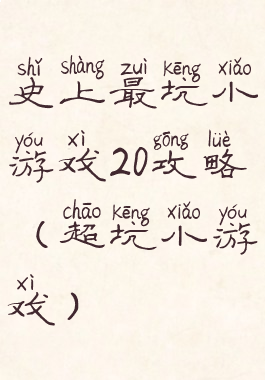 shǐ shàng zuì kēng xiǎo
史上最坑小
yóu xì gōng lüè
游戏20攻略
chāo kēng xiǎo yóu
（超坑小游
xì
戏）